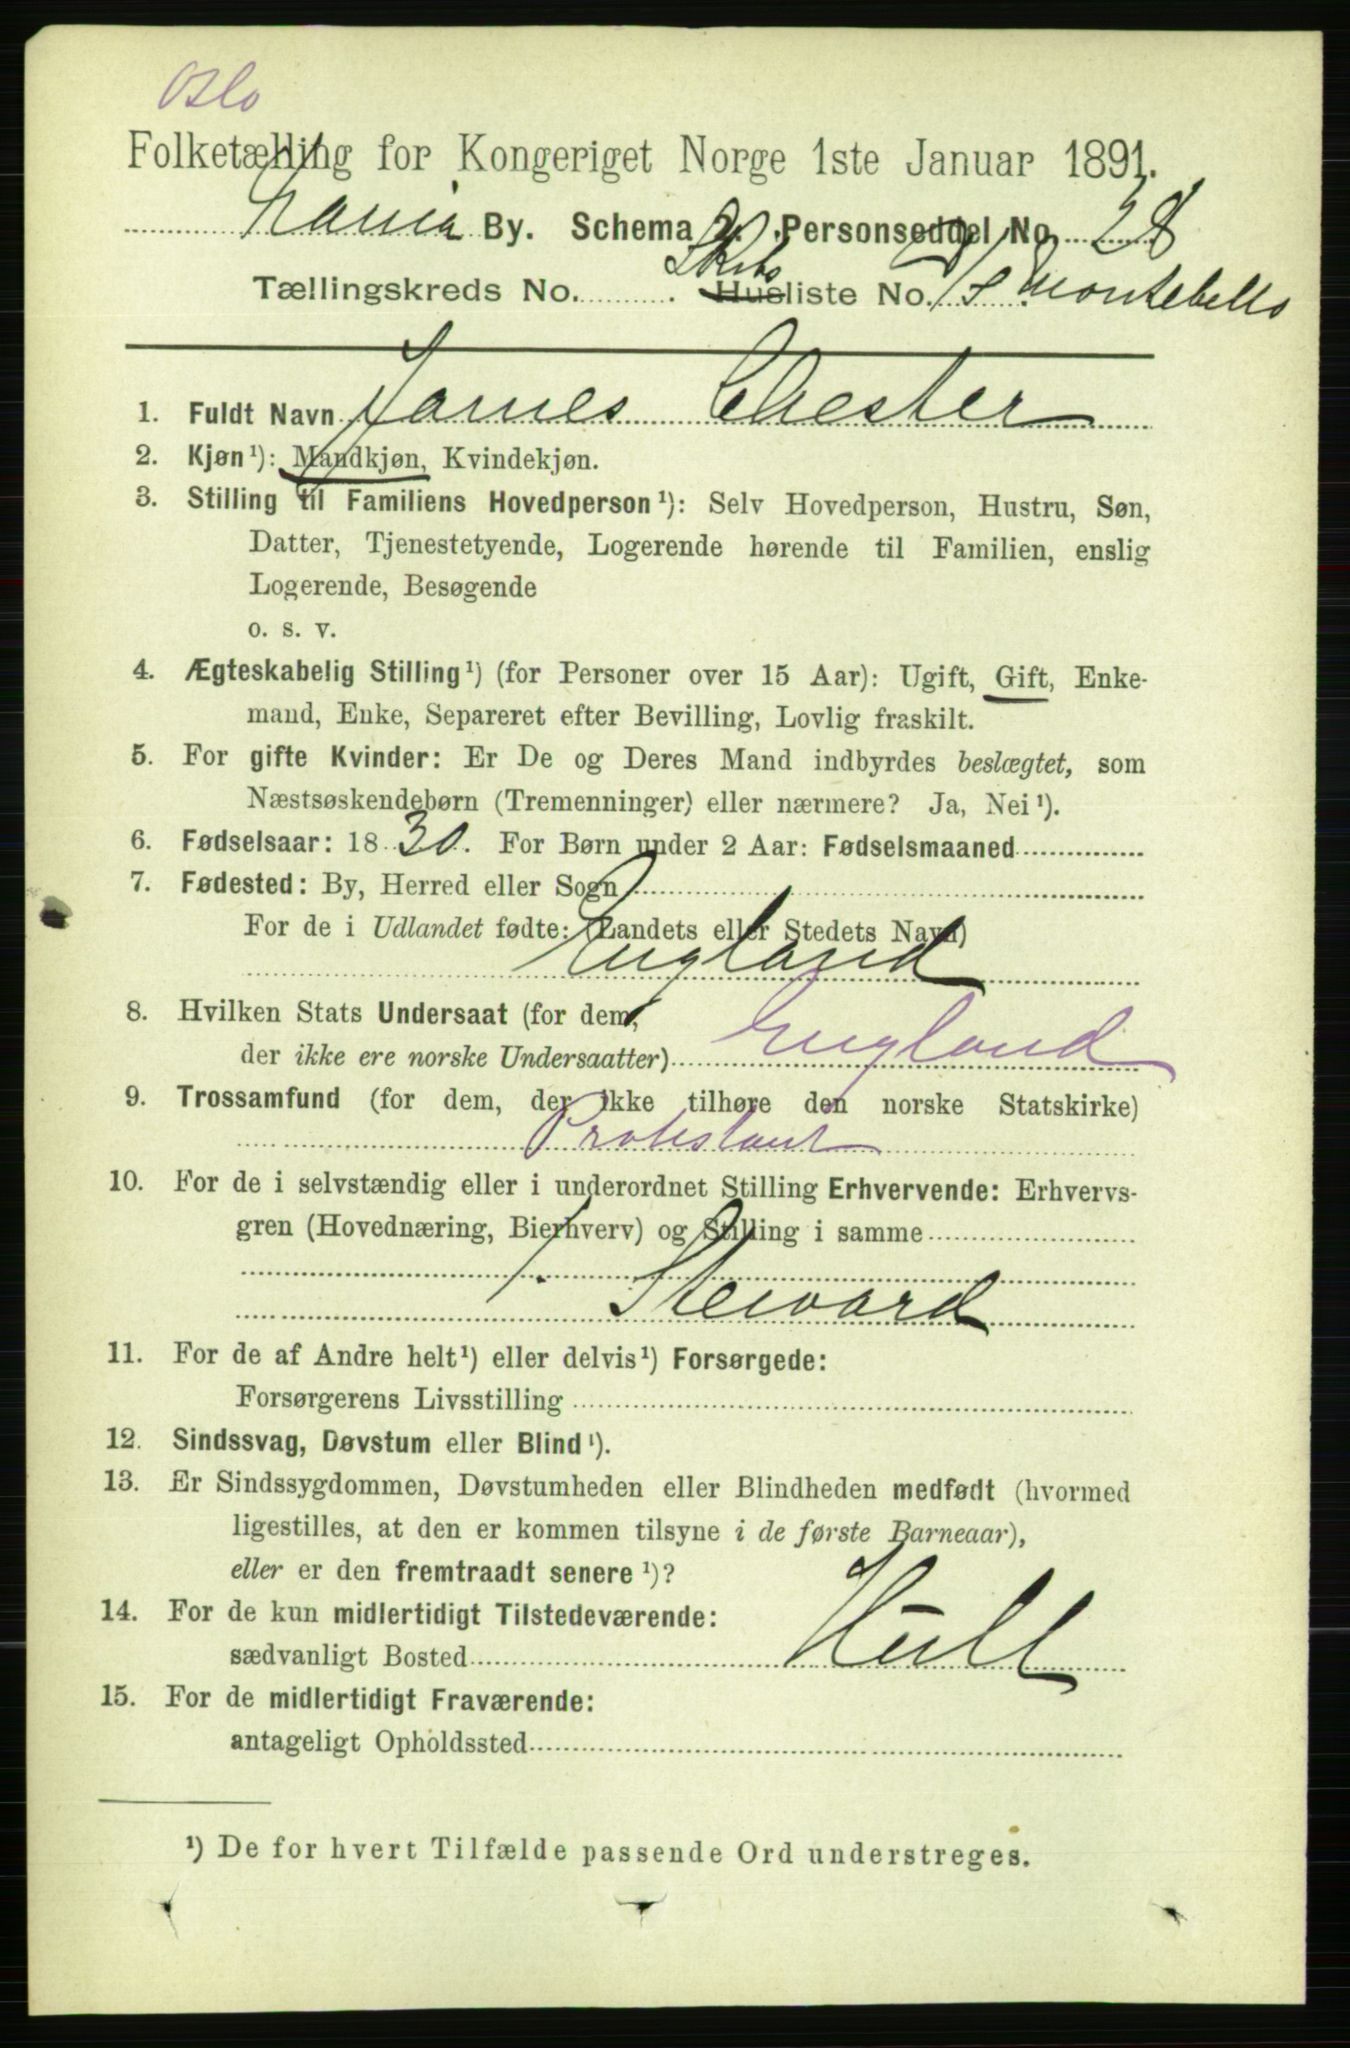 Oslo
Folketælling for Kongeriget Norge 1ste Januar 1891.
By. Schema 2. Personseddel No. 28
Tællingskreds No. . Skibsliste No. S/S Montebello
1. Fuldt Navn James Chester
2. Kjøn ¹): Mandkjøn, Kvindekjøn.
3. Stilling til Familiens Hovedperson ¹): Selv Hovedperson, Hustru, Søn,
Datter, Tjenestetyende, Logerende hørende til Familien, enslig
Logerende, Besøgende
o. s. v.
4. Ægteskabelig Stilling ¹) (for Personer over 15 Aar): Ugift, Gift, Enke-
mand, Enke, Separeret efter Bevilling, Lovlig fraskilt.
5. For gifte Kvinder: Er De og Deres Mand indbyrdes beslægtet, som
Næstsøskendebørn (Tremenninger) eller nærmere? Ja, Nei ¹).
6. Fødselsaar: 1830. For Børn under 2 Aar: Fødselsmaaned
7. Fødested: By, Herred eller Sogn
For de i Udlandet fødte: (Landets eller Stedets Navn)
England
8. Hvilken Stats Undersaat (for dem,
der ikke ere norske Undersaatter) England
9. Trossamfund (for dem, der ikke tilhøre den norske Statskirke)
Protestant
10. For de i selvstændig eller i underordnet Stilling Erhvervende: Erhvervs-
gren (Hovednæring, Bierhverv) og Stilling i samme
/. Steward
11. For de af Andre helt ¹) eller delvis ¹) Forsørgede:
Forsørgerens Livsstilling
12. Sindssvag, Døvstum eller Blind ¹).
13. Er Sindssygdommen, Døvstumheden eller Blindheden medfødt (hvormed
ligestilles, at den er kommen tilsyne i de første Barneaar),
eller er den fremtraadt senere ¹)?
14. For de kun midlertidigt Tilstedeværende:
sædvanligt Bosted Hull
15. For de midlertidigt Fraværende:
antageligt Opholdssted
¹) De for hvert Tilfælde passende Ord understreges.